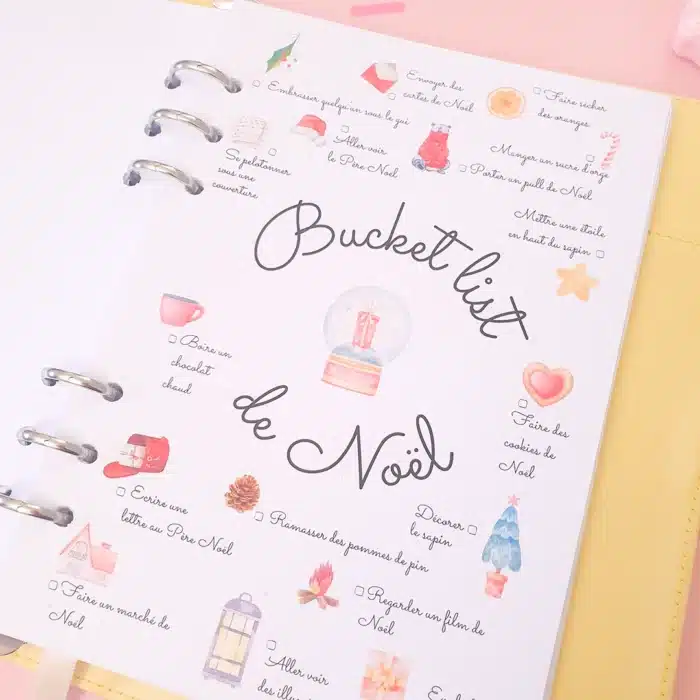 Embrasser quelqu'un sous le gui
Envoyer des
cartes de Noël
Faire sécher
des oranges
Se pelotonner
sous une
couverture
Aller voir
le Père Noël
Manger un sucre d'orge
Porter un pull de Noël
Mettre une étoile
en haut du sapin
Bucket list
de Noël
Boire un
chocolat
chaud
Faire des
cookies de
Noël
Ecrire une
lettre au Père Noël
Ramasser des pommes de pin
Décorer
le sapin
Faire un marché de
Noël
Regarder un film de
Noël
Aller voir